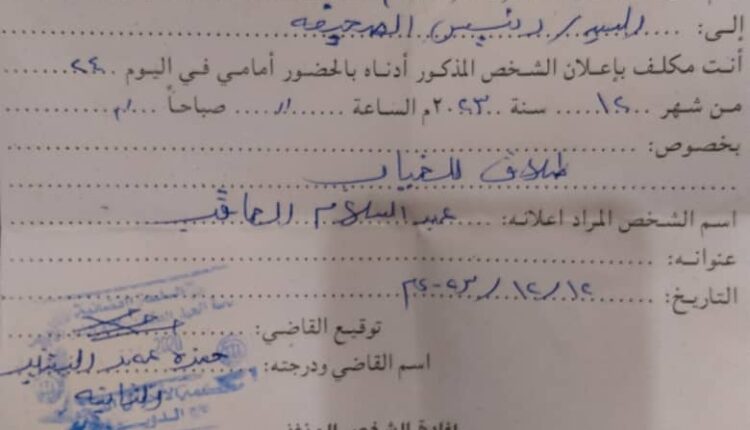 إلى: السيد/ رئيس الصحيفة
أنت مكلف بإعلان الشخص المذكور أدناه بالحضور أمامي في اليوم ٢٤
من شهر ١٢ سنة ٢٠٢٣م الساعة ١١ صباحاً
بخصوص:
طلاق للغياب
اسم الشخص المراد اعلانه: عبد السلام
عنوانه:
التاريخ: ١٢/١٢/٢٠٢٣م
توقيع القاضي:
اسم القاضي ودرجته: حمزه عمد